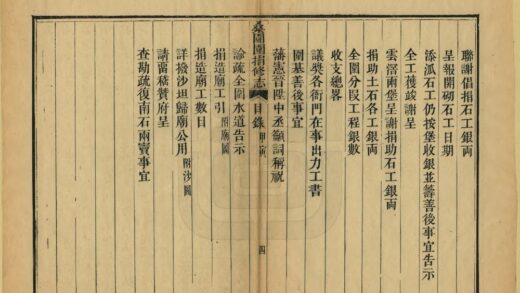 聯謝倡捐石工銀両
呈報開砌石工日期
添派石工仍按堡收銀並籌善後事宜告示
全工獲竣謝呈
雲滘兩堡呈謝捐助石工銀両
捐助土石各工銀両
全圍分叚工程銀數
收支總畧
議獎各衙門在事出力工書
圍基善後事宜
藩憲晉陞中丞額詞稱祝
桑園圍捐修志 目錄 甲寅 四
諭疏全圍水道告示
捐造廟工引 附廟圖
捐造廟工數目
詳撥沙坦歸廟公用 附沙圖
請留稽贊府呈
查勘疏復南石兩竇事宜